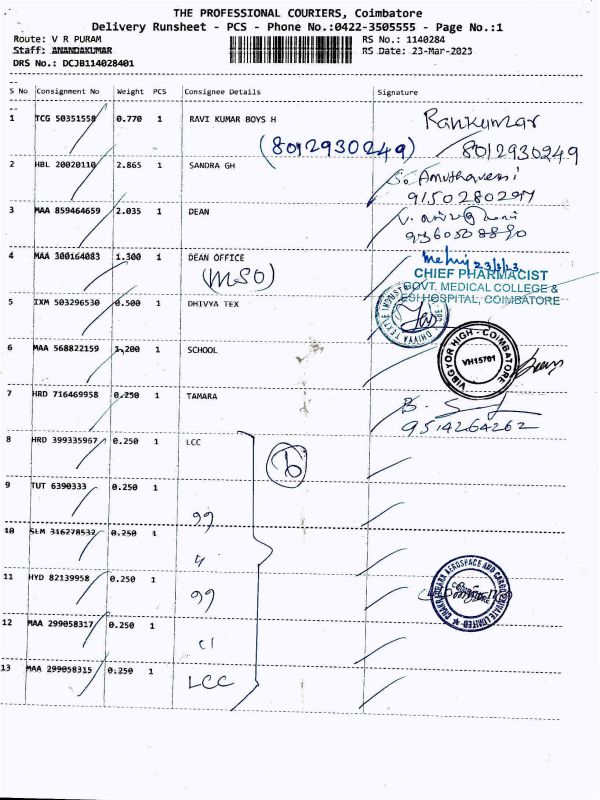 THE PROFESSIONAL COURIERS, Coimbatore
Delivery Runsheet - PCS - Phone No.:0422-3505555 - Page No.:1
Route: V R PURAM
RS No.: 1140284
Staff: ANANDAKUMAR
RS Date: 23-Mar-2023
DRS No.: DCJB114028401
S No Consignment No Weight PCS Consignee Details Signature
1 TCG 50351558 0.770 1 RAVI KUMAR BOYS H Ravikumar
(8012930249) 8012930249
2 HBL 20020110 2.865 1 SANDRA GH
9150280297
3 MAA 859464659 2.035 1 DEAN
9360508890
4 MAA 300164083 1.300 1 DEAN OFFICE
(MSO) 23/3/23
CHIEF PHARMACIST
GOVT. MEDICAL COLLEGE &
ESI HOSPITAL, COIMBATORE
5 IXM 503296530 0.500 1 DHIVYA TEX
6 MAA 568822159 1.200 1 SCHOOL
VIBGYOR HIGH - COIMBATORE
VH15701
7 HRD 716469958 0.250 1 TAMARA
9514264262
8 HRD 399335967 0.250 1 LCC
9 TUT 6390333 0.250 1
10 SLM 316278532 0.250 1
11 HYD 82139958 0.250 1
12 MAA 299058317 0.250 1
13 MAA 299058315 0.250 1 LCC